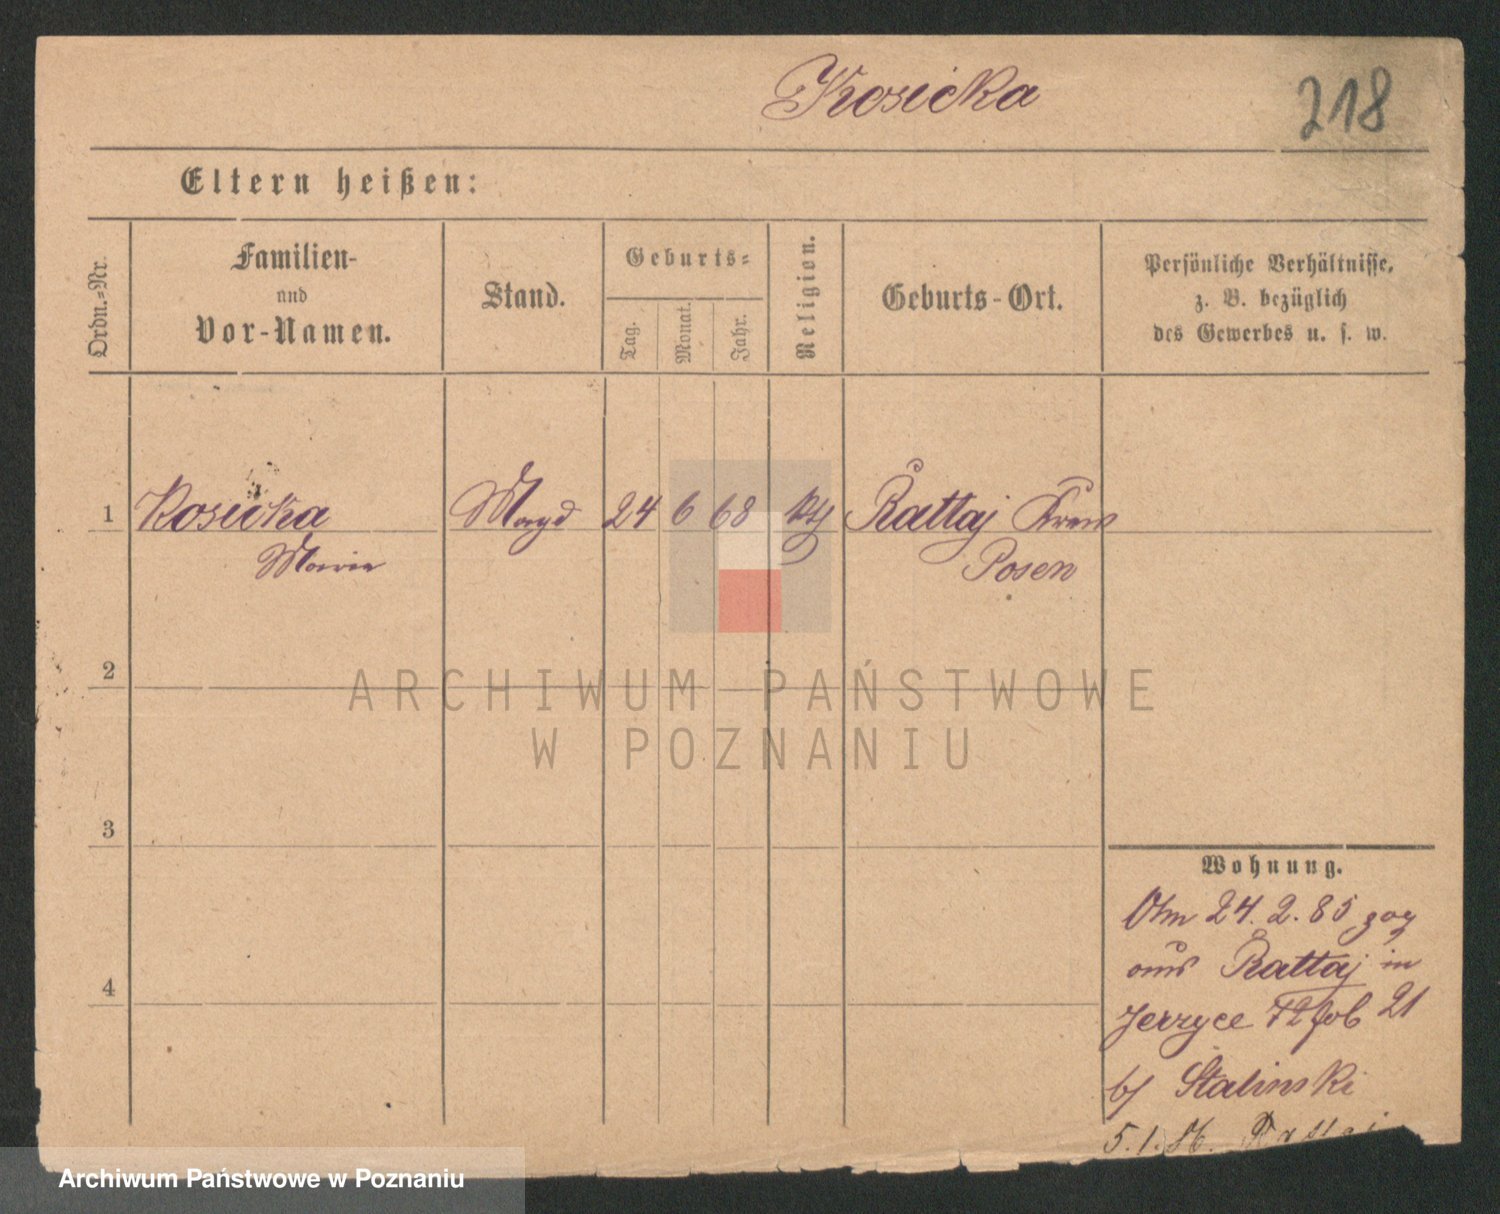 Kosicka
218
Eltern heißen:
Ordn.=Nr.
Familien-
und
Vor-Namen.
Stand.
Geburts=
Tag.
Monat.
Jahr.
Religion.
Geburts-Ort.
Persönliche Verhältnisse,
z. B. bezüglich
des Gewerbes u. s. w.
1
Kosicka
Marie
Magd
24
6
68
kth
Rattaj Kreis
Posen
2
ARCHIWUM PAŃSTWOWE
W POZNANIU
3
Wohnung.
Am 24.2.85 zog
aus Rattaj in
Jerzyce 21
b/ Stalinski
4
5.1.86. Rattaj
Archiwum Państwowe w Poznaniu